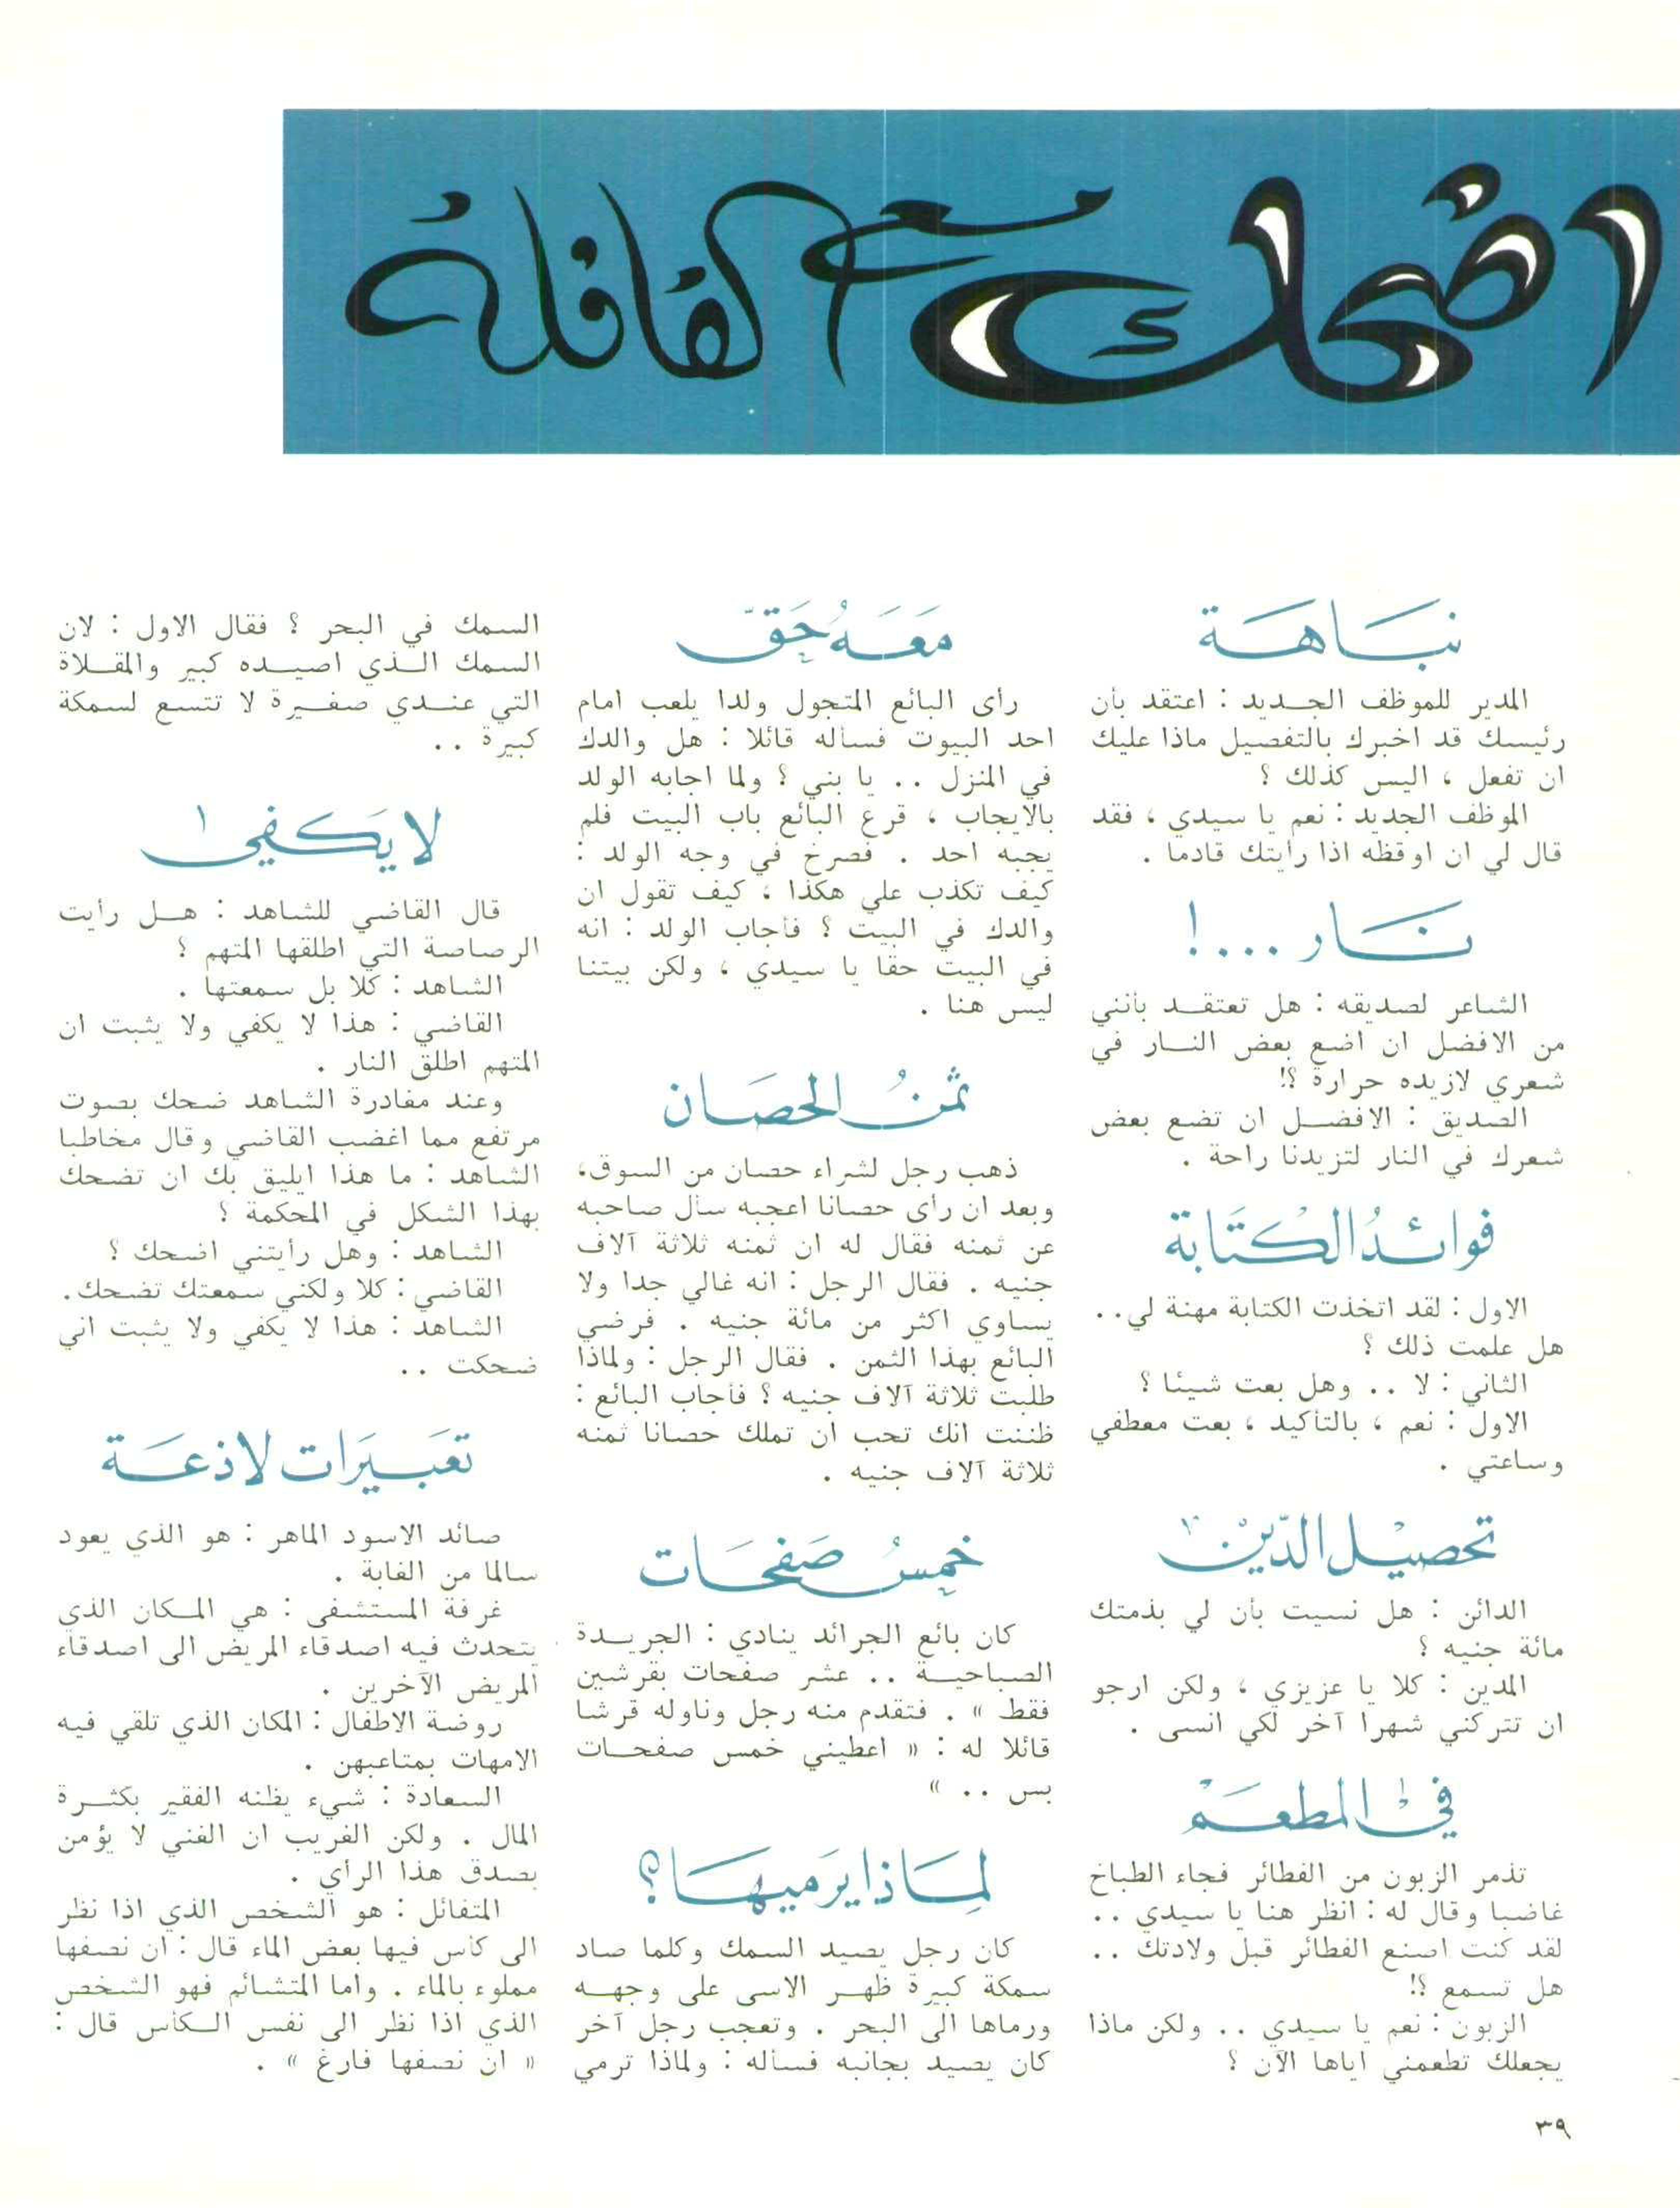 اضحك مع القافلة
نباهة
المدير للموظف الجديد : اعتقد بأن
رئيسك قد اخبرك بالتفصيل ماذا عليك
ان تفعل ، اليس كذلك ؟
الموظف الجديد : نعم يا سيدي ، فقد
قال لي ان اوقظه اذا رايتك قادما .
نار ...!
الشاعر لصديقه : هل تعتقد بأنني
من الافضل ان اضع بعض النار في
شعري لازيده حرارة ؟!
الصديق : الافضل ان تضع بعض
شعرك في النار لتزيدنا راحة .
فوائد الكتابة
الاول : لقد اتخذت الكتابة مهنة لي ..
هل علمت ذلك ؟
الثاني : لا .. وهل بعت شيئا ؟
الاول : نعم ، بالتأكيد ، بعت معطفي
وساعتي .
تحصيل الدّين
الدائن : هل نسيت بأن لي بذمتك
مائة جنيه ؟
المدين : كلا يا عزيزي ، ولكن ارجو
ان تتركني شهرا آخر لكي انسى .
في المطعم
تذمر الزبون من الفطائر فجاء الطباخ
غاضبا وقال له : انظر هنا يا سيدي ..
لقد كنت اصنع الفطائر قبل ولادتك ..
هل تسمع ؟!
الزبون : نعم يا سيدي .. ولكن ماذا
يجعلك تطعمني اياها الآن ؟
مَعَهُ حَقّ
رأى البائع المتجول ولدا يلعب امام
احد البيوت فساله قائلا : هل والدك
في المنزل .. يا بني ؟ ولما اجابه الولد
بالايجاب ، قرع البائع باب البيت فلم
يجبه احد . فصرخ في وجه الولد :
كيف تكذب علي هكذا ، كيف تقول ان
والدك في البيت ؟ فأجاب الولد : انه
في البيت حقا يا سيدي ، ولكن بيتنا
ليس هنا .
ثمنُ الحصَان
ذهب رجل لشراء حصان من السوق،
وبعد ان رأى حصانا اعجبه سأل صاحبه
عن ثمنه فقال له ان ثمنه ثلاثة آلاف
جنيه . فقال الرجل : انه غالي جدا ولا
يساوي اكثر من مائة جنيه . فرضي
البائع بهذا الثمن . فقال الرجل : ولماذا
طلبت ثلاثة آلاف جنيه ؟ فأجاب البائع :
ظننت انك تحب ان تملك حصانا ثمنه
ثلاثة آلاف جنيه .
خمسُ صَفحَات
كان بائع الجرائد ينادي : الجريدة
الصباحية .. عشر صفحات بقرشين
فقط » . فتقدم منه رجل وناوله قرشا
قائلا له : « اعطيني خمس صفحات
بس .. »
لمَاذا يَرميهَا ؟
كان رجل يصيد السمك وكلما صاد
سمكة كبيرة ظهر الاسى على وجهه
ورماها الى البحر . وتعجب رجل آخر
كان يصيد بجانبه فساله : ولماذا ترمي
السمك في البحر ؟ فقال الاول : لان
السمك الذي اصيده كبير والمقلاة
التي عندي صغيرة لا تتسع لسمكة
كبيرة ..
لا يَكفي !
قال القاضي للشاهد : هل رأيت
الرصاصة التي اطلقها المتهم ؟
الشاهد : كلا بل سمعتها .
القاضي : هذا لا يكفي ولا يثبت ان
المتهم اطلق النار .
وعند مغادرة الشاهد ضحك بصوت
مرتفع مما اغضب القاضي وقال مخاطبا
الشاهد : ما هذا ايليق بك ان تضحك
بهذا الشكل في المحكمة ؟
الشاهد : وهل رأيتني اضحك ؟
القاضي : كلا ولكني سمعتك تضحك.
الشاهد : هذا لا يكفي ولا يثبت اني
ضحكت ..
تعَبيرَات لاذعَة
صائد الاسود الماهر : هو الذي يعود
سالما من الغابة .
غرفة المستشفى : هي المكان الذي
يتحدث فيه اصدقاء المريض الى اصدقاء
المريض الآخرين .
روضة الاطفال : المكان الذي تلقي فيه
الامهات بمتاعبهن .
السعادة : شيء يظنه الفقير بكثرة
المال . ولكن الغريب ان الغني لا يؤمن
بصدق هذا الرأي .
المتفائل : هو الشخص الذي اذا نظر
الى كأس فيها بعض الماء قال : ان نصفها
مملوء بالماء . واما المتشائم فهو الشخص
الذي اذا نظر الى نفس الكأس قال :
« ان نصفها فارغ » .
٣٩